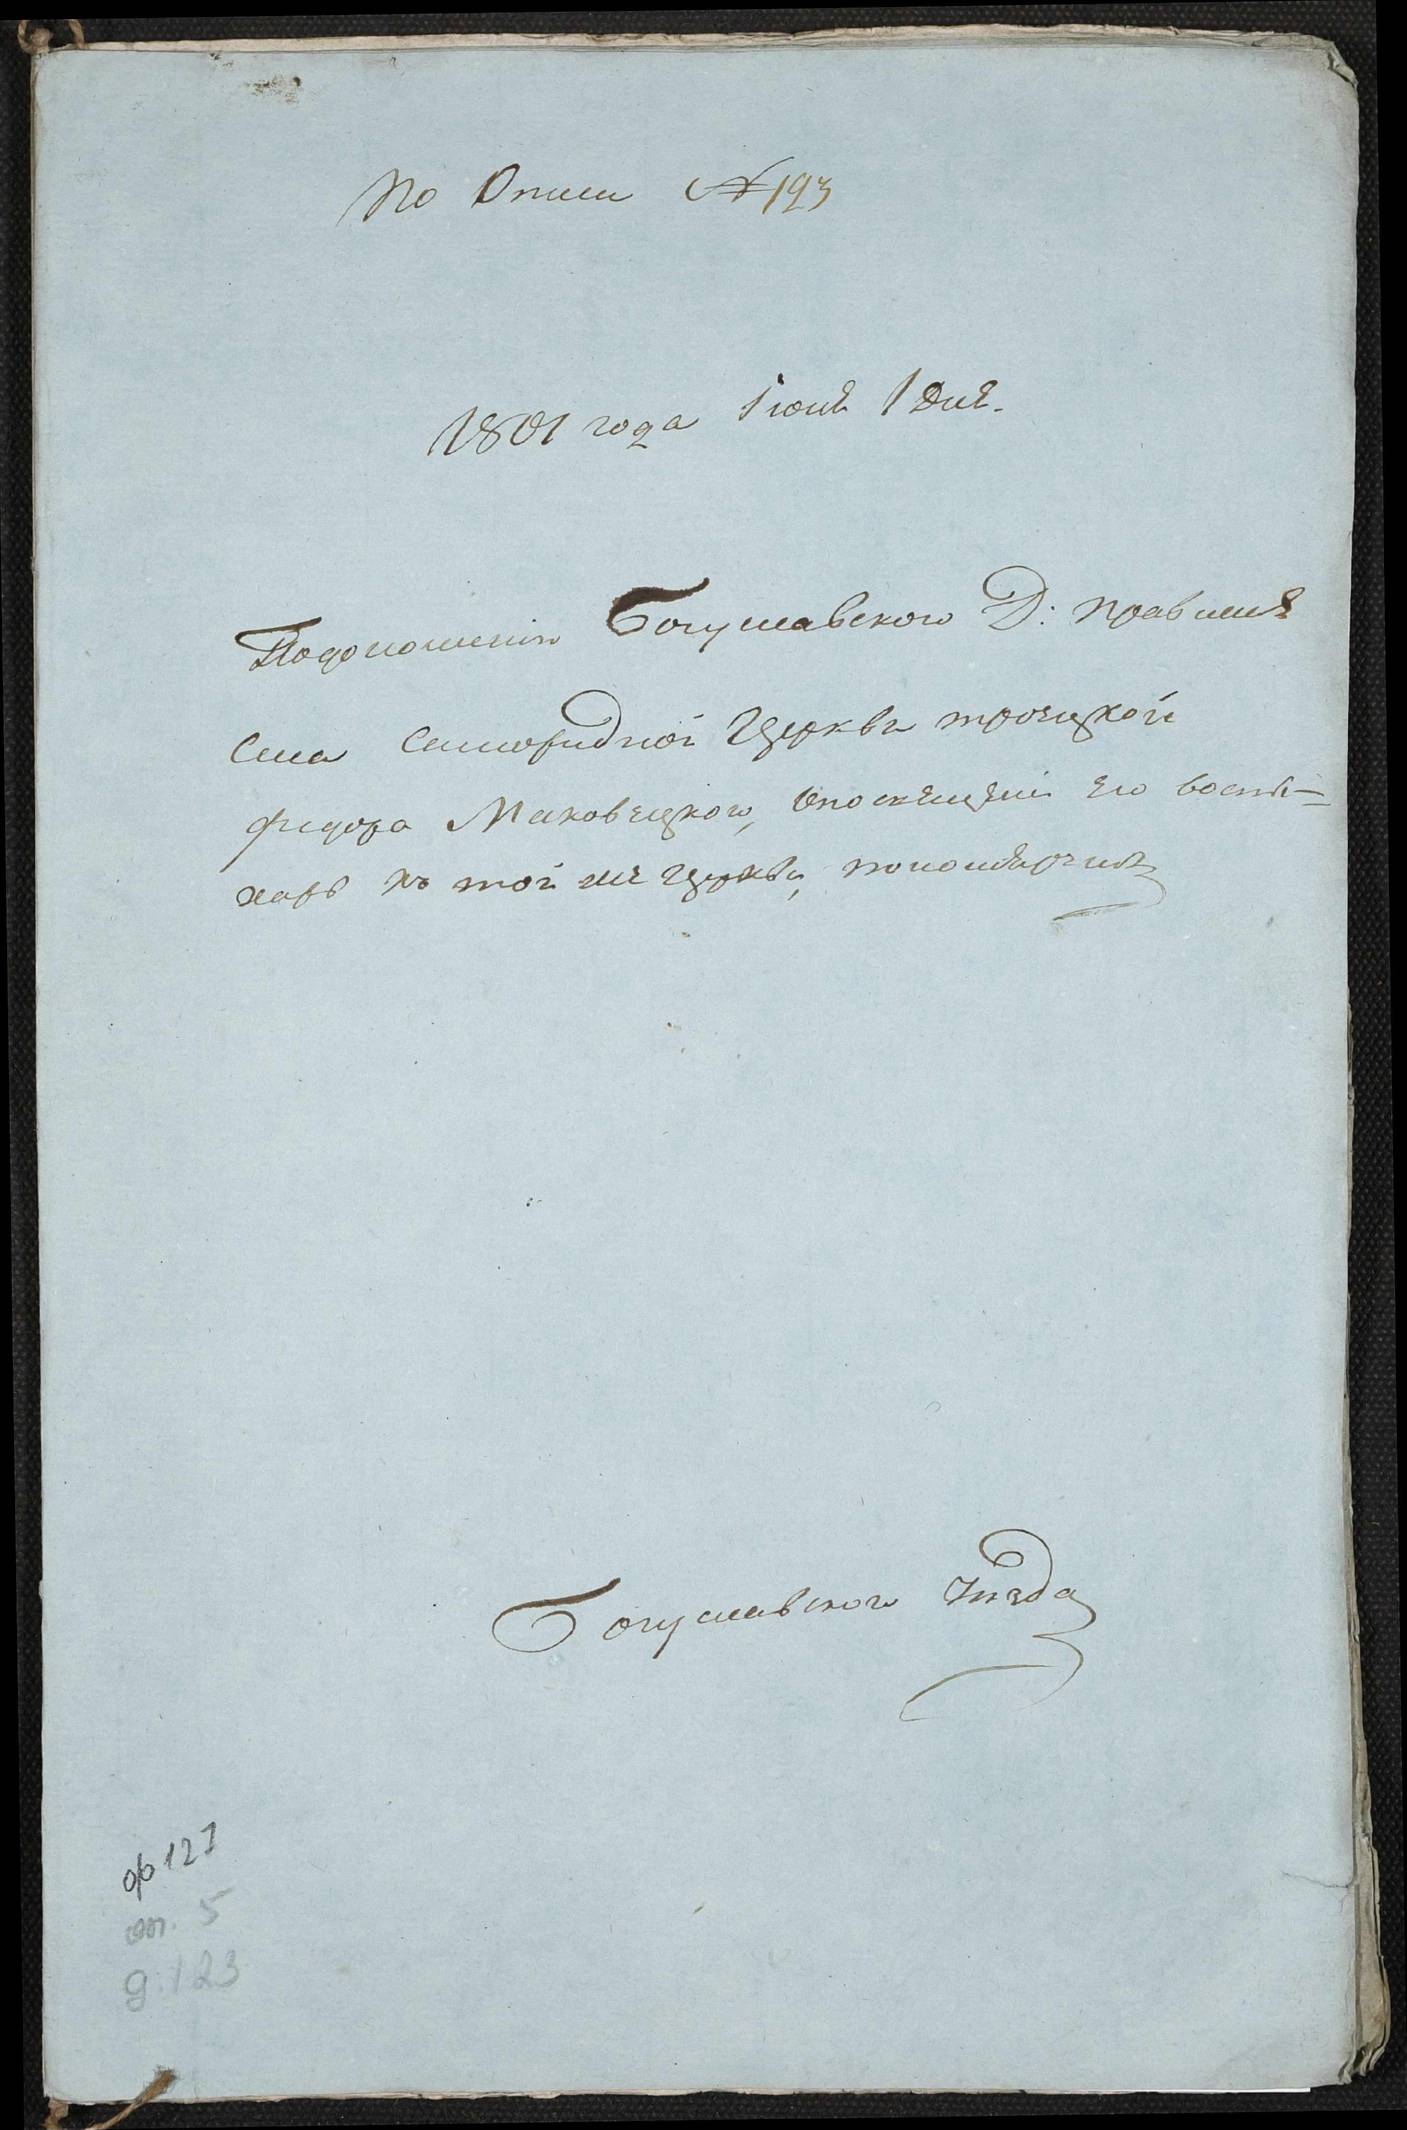 По Описи № 193
1801 года Июня 1 дня.
Подоношению Богуславского Д: правления
села Самородной Церкви троецкой
федора Маковецкого, опосвящении его восты=
харь къ той же церкви, пономаря
Богуславского уезда
ф 127
оп. 5
д. 123